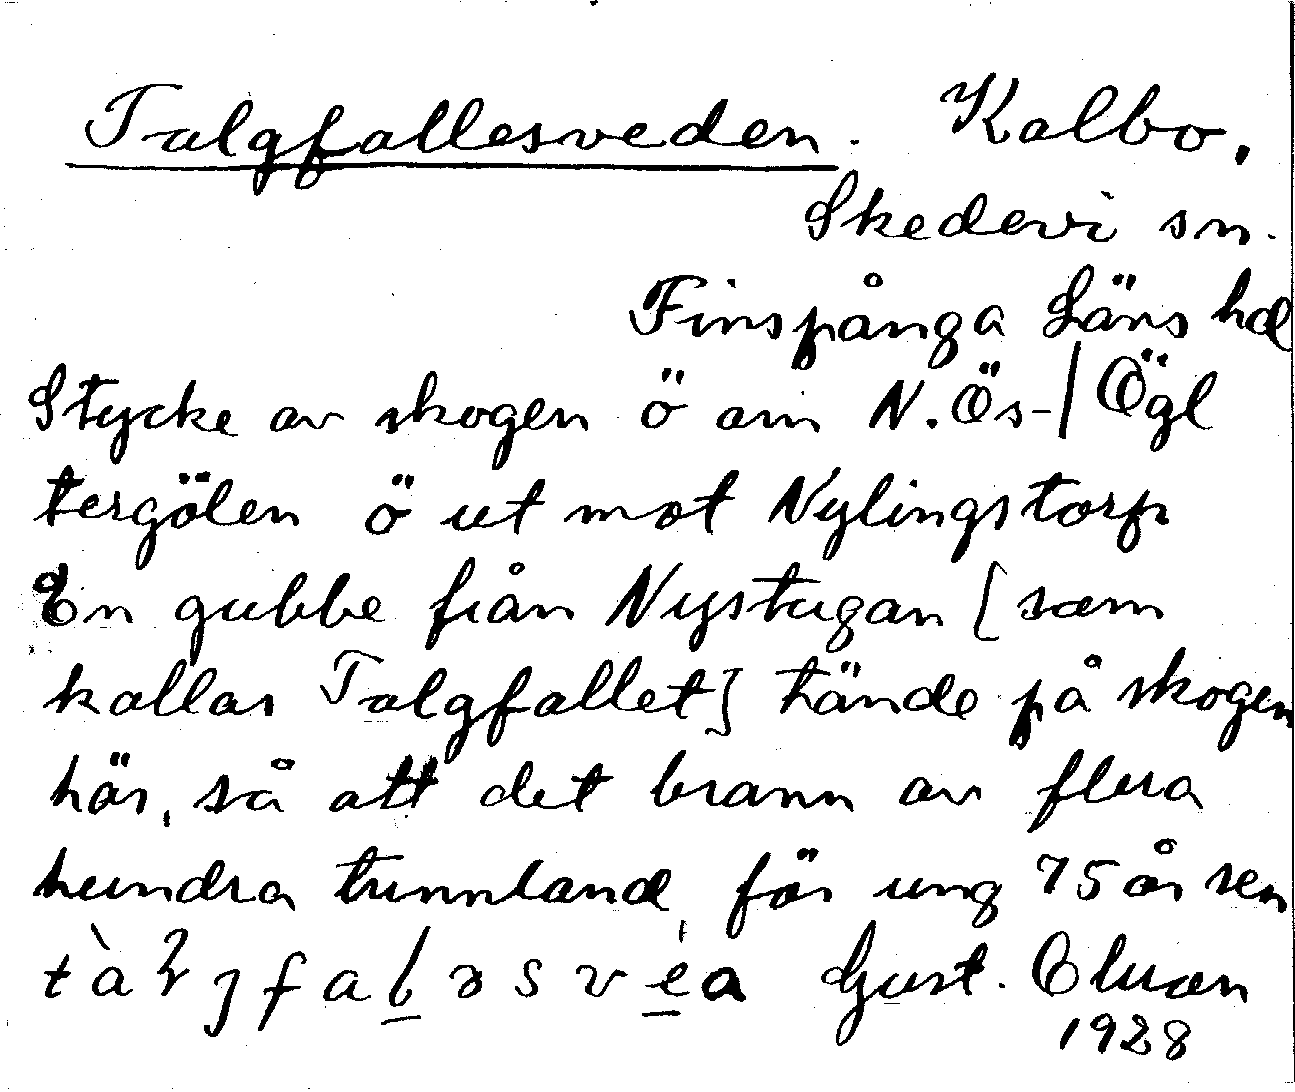 Talgfallesveden. Kalbo,
Skedevi sn.
Finspånga Läns hd
Stycke av skogen ö om N. Ös-/ Ögl
tergölen ö ut mot Nylingstorp
En gubbe från Nystugan [som
kallas Talgfallet] tände på skogen
här, så att det brann av flera
hundra tunnland, för ung 75 år sen
Gust. Eluan
1928